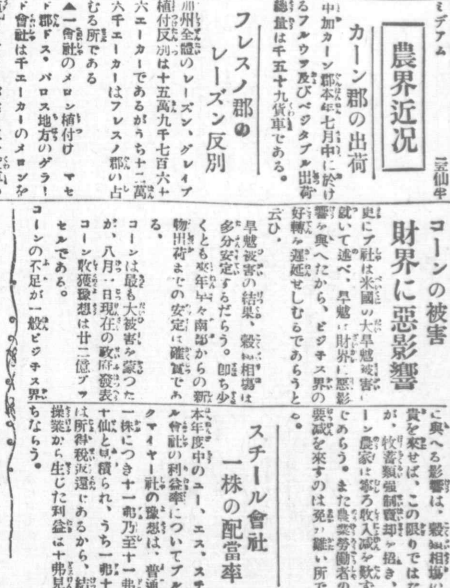 ミデアム
仙半
農界近況
カーン郡の出荷
中加カーン郡本年七月中に於け
るフルウツ及びベジタブル出荷
總量は千五十九貨車である。
フレスノ郡の
レーズン反別
加州全體のレーズン、グレイプ
植付反別は十五萬九千七百六十
六エーカーであるがうち十二萬
六千エーカーはフレスノ郡の占
むる所である
▲一會社のメロン植付け マセ
ド郡ド、パロス地方のゲラ！
ド會社は千エーカーのメロンを
コーンの被害
財界に惡影響
更にブ社は米國の大旱魃被害に
就いて述べ、旱魃は財界に惡影
響を與へたから、ビジネス界の
好轉を遲延せしむるであらうと
云ひ、
旱魃被害の結果、穀物相塲は
多分安定するだらう。卽ち少
くとも來年早々南部からの新
物出荷までの安定は確實であ
る、
コーンは最も大被害を蒙つた
が、八月一日現在の政府發表
コーン收獲豫想は廿二億ブツ
セルである。
コーンの不足が一般ビジネス界
に與へる影響は、穀物相塲の
貴を來せば、この限りでは
が、牧畜類強制賣却を招き
ーン農家は寧ろ收入減を歎ず
であらう。また農業勞働者の
要減を來すのは免れ難い所で
る。
スチール會社
一株の配當率
本年度中のユー、エス、スチ
ル會社の利益率についてブル
クマイヤー社の豫想は、普通
一株につき十一弗乃至十一弗
十仙と見積られ、うち一弗十
は所得税返還であるから、結
操業から生じた利益は十弗見
ちならう。